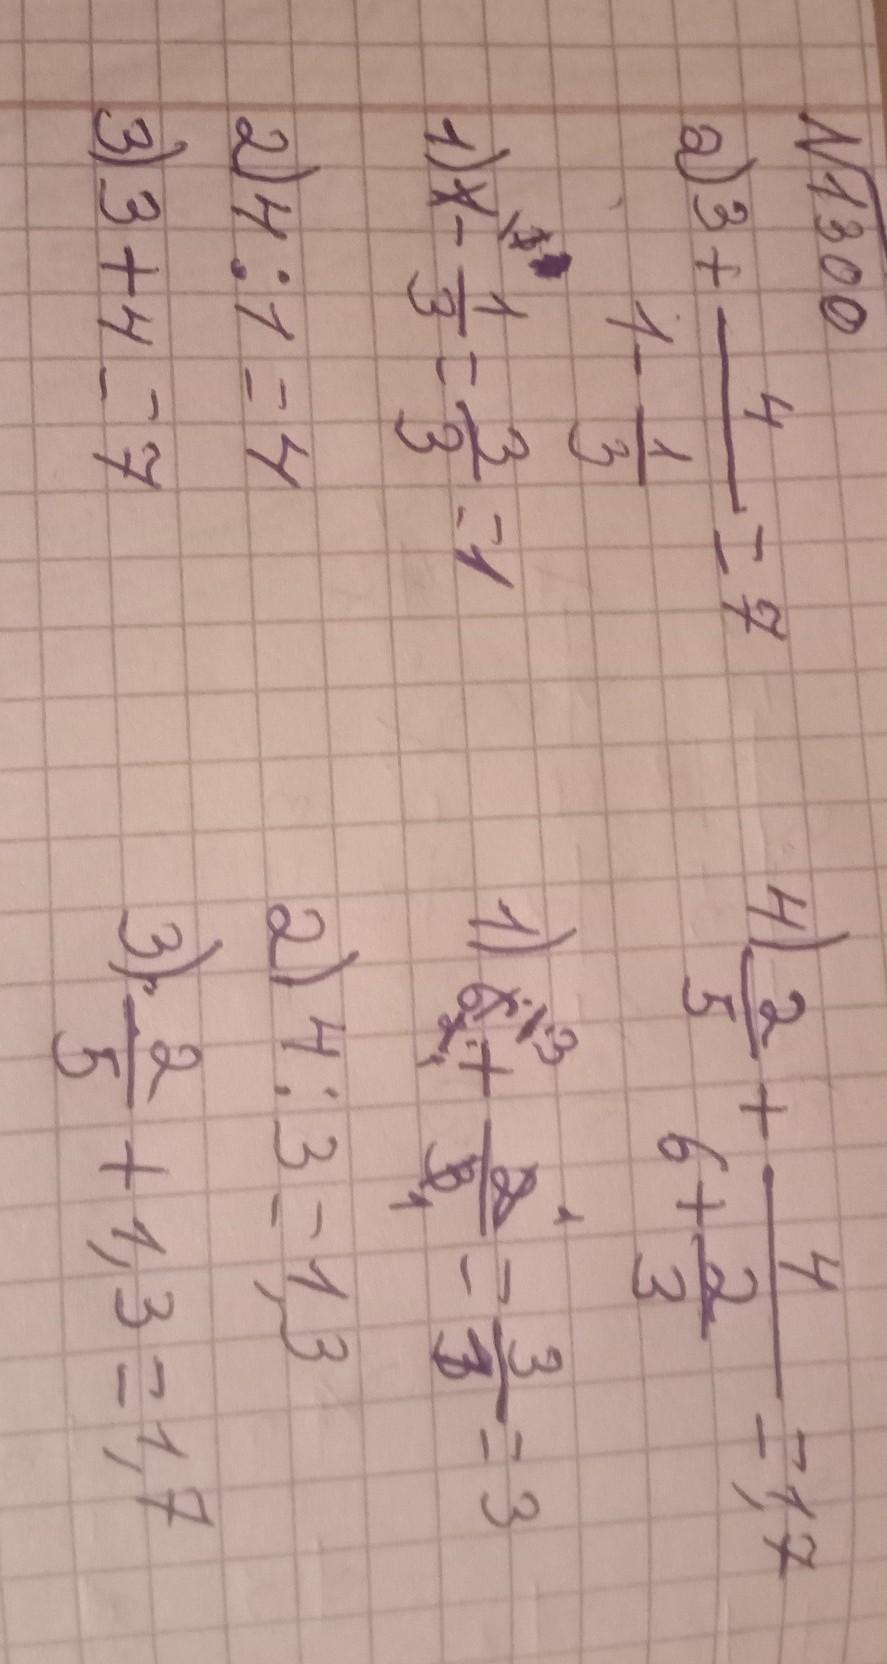 №1300
а) 3 + 4/(1 - 1/3) = 7
1) 1 - 1/3 = 3/3 = 1
2) 4 : 1 = 4
3) 3 + 4 = 7
4) 2/5 + 4/(6 + 2/3) = 1,7
1) 6 3 + 2/3 1 1 = 3/1 = 3
2) 4 : 3 = 1,3
3) 2/5 + 1,3 = 1,7